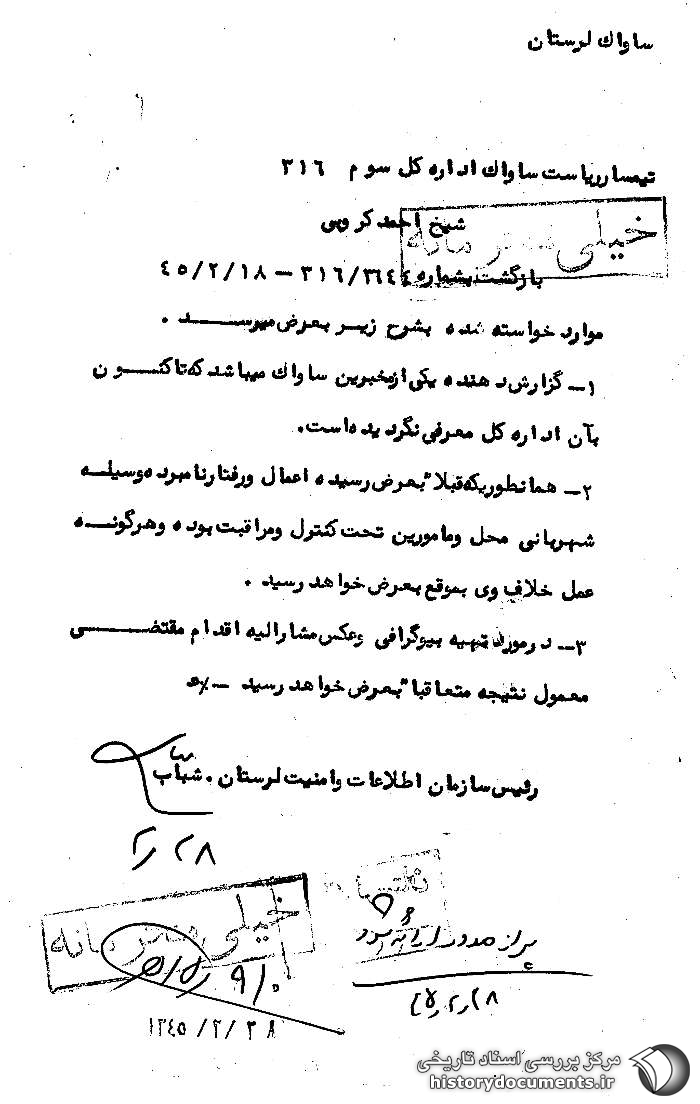 ساواك لرستان
تیمسار ریاست ساواك اداره كل سوم ۳۱۶
شیخ احمد كروبی
خیلی محرمانه
بازگشت بشماره ۳۱۶/۳۶۴۴ – ۴۵/۲/۱۸
موارد خواسته شده بشرح زیر بعرض میرسد .
۱– گزارش دهنده یكی از مخبرین ساواك میباشد كه تاكنون
بآن اداره كل معرفی نگردیده است.
۲– همانطوریكه قبلا" بعرض رسیده اعمال ورفتار نامبرده وسیله
شهربانی محل ومامورین تحت كنترل ومراقبت بوده وهرگونه
عمل خلاف وی بموقع بعرض خواهد رسید .
۳– در مورد تهیه بیوگرافی وعكس مشارالیه اقدام مقتضی
معمول نتیجه متعاقبا" بعرض خواهد رسید
رئیس سازمان اطلاعات وامنیت لرستان . شباب
۲۸
خیلی محرمانه
پس از صدور
۱۳۴۵/۲/۲۸
مركز بررسی اسناد تاریخی
historydocuments.ir